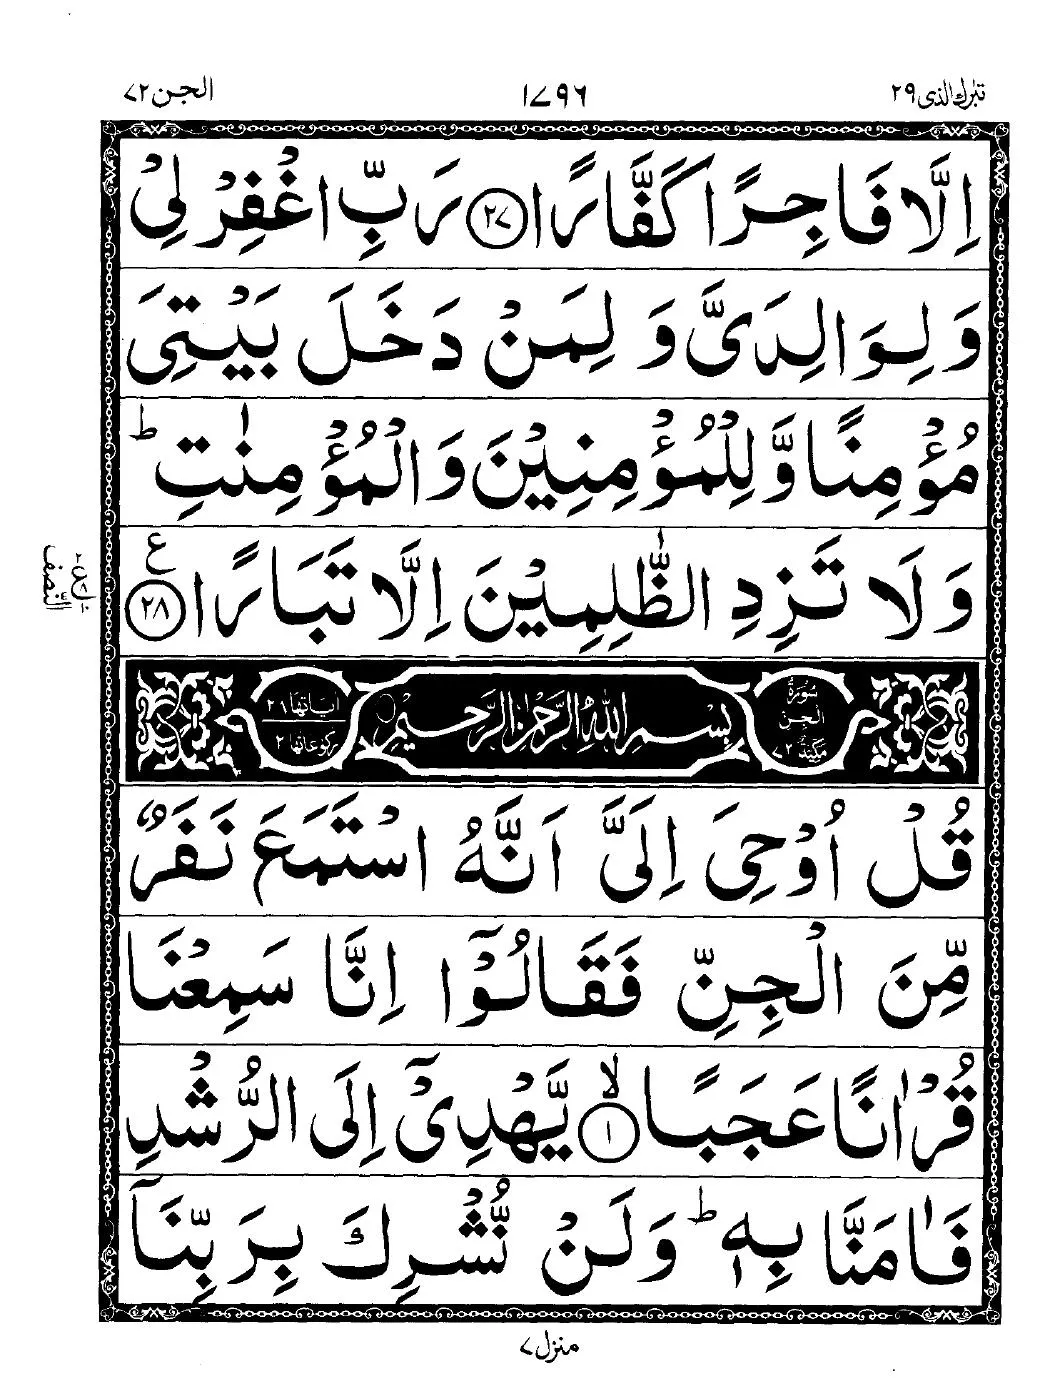 تبٰرك الذى ٢٩
١٧٩٦
الجن ٧٢
اِلَّا فَاجِرًا كَفَّارًا ۝٢٧ رَبِّ اغْفِرْ لِىْ
وَلِوَالِدَىَّ وَلِمَنْ دَخَلَ بَيْتِىَ
مُؤْمِنًا وَّلِلْمُؤْمِنِيْنَ وَالْمُؤْمِنٰتِ ؕ
وَلَا تَزِدِ الظّٰلِمِيْنَ اِلَّا تَبَارًا ۝٢٨ ع
النصف
سُوْرَةُ الْجِنِّ مَكِّيَّة ٧٢
بِسْمِ اللهِ الرَّحْمٰنِ الرَّحِيْمِ
اٰيَاتُهَا ٢٨
رُكُوْعَاتُهَا ٢
قُلْ اُوْحِىَ اِلَىَّ اَنَّهُ اسْتَمَعَ نَفَرٌ
مِّنَ الْجِنِّ فَقَالُوْٓا اِنَّا سَمِعْنَا
قُرْاٰنًا عَجَبًا ۝١ ۙ يَّهْدِىْٓ اِلَى الرُّشْدِ
فَاٰمَنَّا بِهٖ ؕ وَلَنْ نُّشْرِكَ بِرَبِّنَآ
منزل ٧